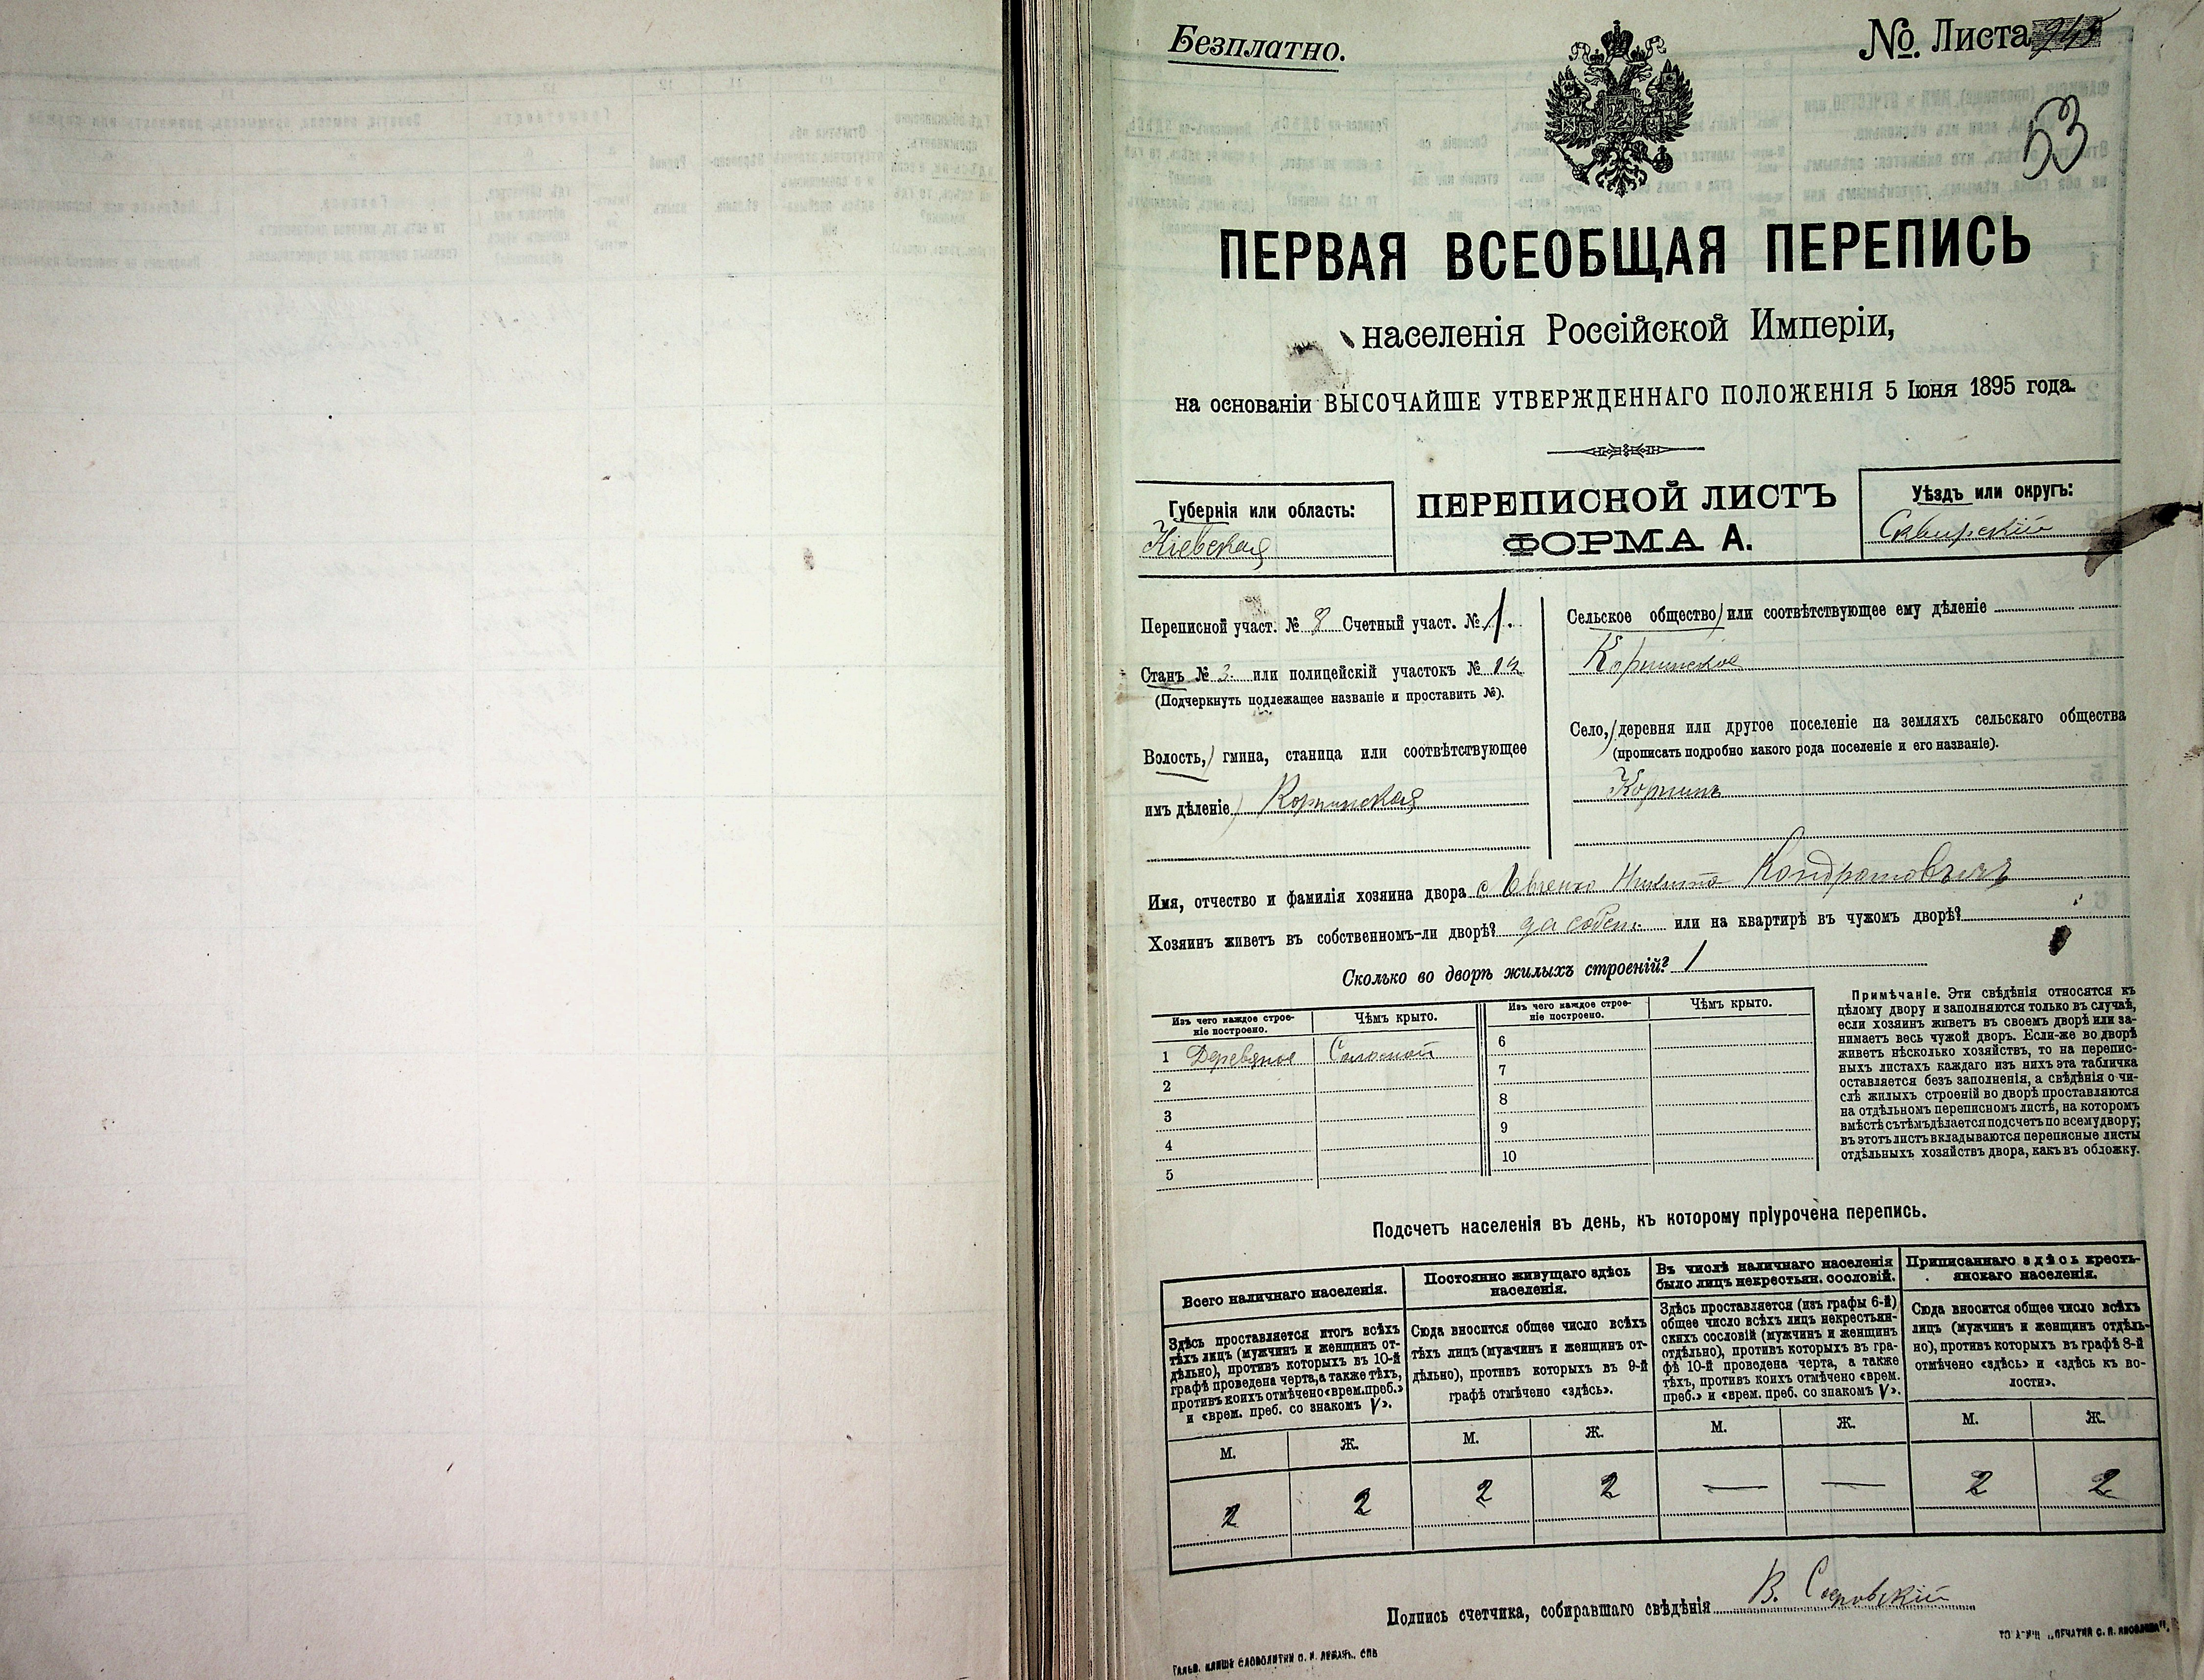 Безплатно.
№ Листа
53
ПЕРВАЯ ВСЕОБЩАЯ ПЕРЕПИСЬ
населенія Россійской Имперіи,
на основаніи ВЫСОЧАЙШЕ УТВЕРЖДЕННАГО ПОЛОЖЕНІЯ 5 Іюня 1895 года.
Губернія или область:
Кіевская
ПЕРЕПИСНОЙ ЛИСТЪ
ФОРМА А.
Уѣздъ или округъ:
Сквирскій
Переписной участ. № 8 Счетный участ. № 1.
Станъ № 3. или полицейскій участокъ № 12
(Подчеркнуть подлежащее названіе и проставить №).
Волость, гмина, станица или соотвѣтствующее
имъ дѣленіе) Корнинская
Сельское общество) или соотвѣтствующее ему дѣленіе
Корнинское
Село, деревня или другое поселеніе на земляхъ сельскаго общества
(прописать подробно какого рода поселеніе и его названіе).
Корнинъ
Имя, отчество и фамилія хозяина двора Никита Кондратовичъ
Хозяинъ живетъ въ собственномъ-ли дворѣ? да собст. или на квартирѣ въ чужомъ дворѣ?
Сколько во дворѣ жилыхъ строеній? 1
Изъ чего каждое строе-
ніе построено.
Чѣмъ крыто.
1 Деревяное Соломой
2
3
4
5
Изъ чего каждое строе-
ніе построено.
Чѣмъ крыто.
6
7
8
9
10
Примѣчаніе. Эти свѣдѣнія относятся къ
цѣлому двору и заполняются только въ случаѣ,
если хозяинъ живетъ въ своемъ дворѣ или за-
нимаетъ весь чужой дворъ. Если-же во дворѣ
живетъ нѣсколько хозяйствъ, то на перепис-
ныхъ листахъ каждаго изъ нихъ эта табличка
оставляется безъ заполненія, а свѣдѣнія о чи-
слѣ жилыхъ строеній во дворѣ проставляются
на отдѣльномъ переписномъ листѣ, на которомъ
вмѣстѣ съ тѣмъ дѣлается подсчетъ по всему двору;
въ этотъ листъ вкладываются переписные листы
отдѣльныхъ хозяйствъ двора, какъ въ обложку.
Подсчетъ населенія въ день, къ которому пріурочена перепись.
Всего наличнаго населенія.
Здѣсь проставляется итогъ всѣхъ
тѣхъ лицъ (мужчинъ и женщинъ от-
дѣльно), противъ которыхъ въ 10-й
графѣ проведена черта, а также тѣхъ,
противъ коихъ отмѣчено «врем. преб.»
и «врем. преб. со знакомъ V».
М. Ж.
2 2
Постоянно живущаго здѣсь
населенія.
Сюда вносится общее число всѣхъ
тѣхъ лицъ (мужчинъ и женщинъ от-
дѣльно), противъ которыхъ въ 9-й
графѣ отмѣчено «здѣсь».
М. Ж.
2 2
Въ числѣ наличнаго населенія
было лицъ некрестьян. сословій.
Здѣсь проставляется (изъ графы 6-й)
общее число всѣхъ лицъ некрестьян-
скихъ сословій (мужчинъ и женщинъ
отдѣльно), противъ которыхъ въ гра-
фѣ 10-й проведена черта, а также
тѣхъ, противъ коихъ отмѣчено «врем.
преб.» и «врем. преб. со знакомъ V».
М. Ж.
— —
Приписаннаго здѣсь кресть-
янскаго населенія.
Сюда вносится общее число всѣхъ
лицъ (мужчинъ и женщинъ отдѣль-
но), противъ которыхъ въ графѣ 8-й
отмѣчено «здѣсь» и «здѣсь къ во-
лости».
М. Ж.
2 2
Подпись счетчика, собиравшаго свѣдѣнія В.